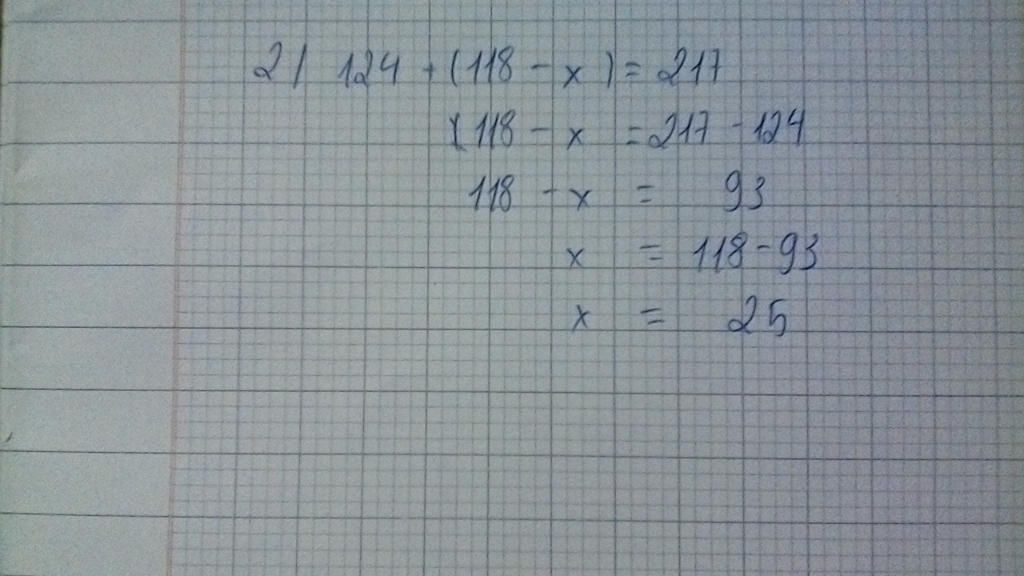 2/ 124 + (118 - x) = 217
118 - x = 217 - 124
118 - x = 93
x = 118 - 93
x = 25